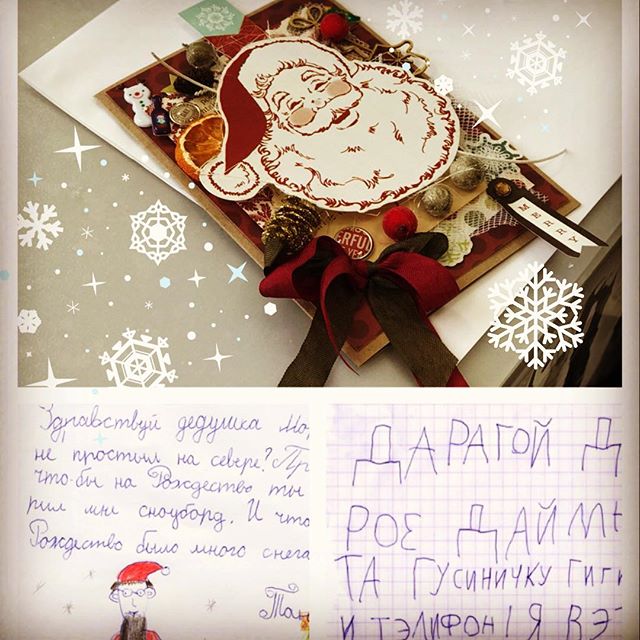 MERRY
ERFUL
Здравствуй дедушка Мо
не простыл на севере? Пр
что-бы на Рождество ты
рил мне сноуборд. И что
Рождество было много снега
Та
ДАРАГОЙ Д
РОЕ ДАЙ М
ТА ГУСИНИЧКУ ГИГ
И ТЭЛИФОН! Я ВЭ